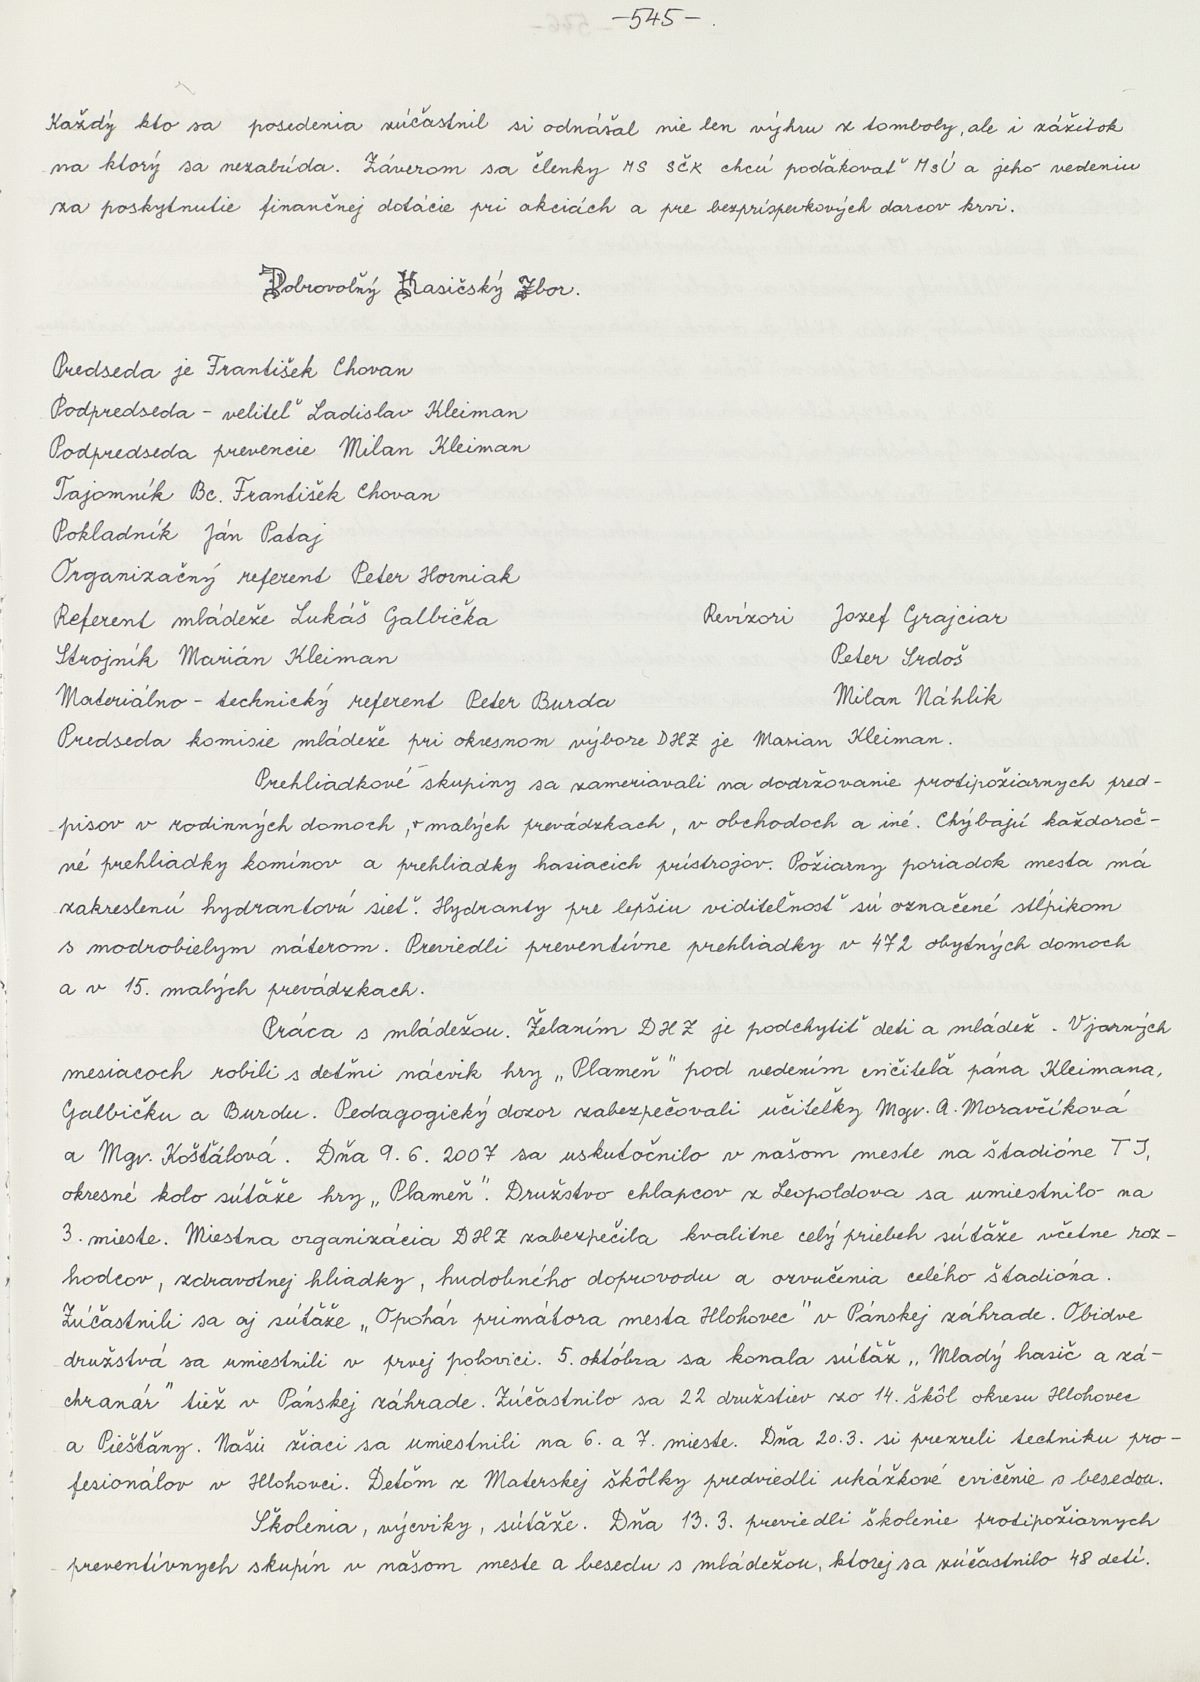 -545-.
Každý kto sa posedenia zúčastnil si odnášal nie len výhru z tomboly, ale i zážitok
na ktorý sa nezabúda. Záverom sa členky MS SČK chcú poďakovať MsÚ a jeho vedeniu
za poskytnutie finančnej dotácie pri akciách a pre bezpríspevkových darcov krvi.
Dobrovoľný Hasičský Zbor.
Predseda je František Chovan
Podpredseda - veliteľ Ladislav Kleiman
Podpredseda prevencie Milan Kleiman
Tajomník Bc. František Chovan
Pokladník Ján Pataj
Organizačný referent Peter Horniak
Referent mládeže Lukáš Galbička Revízori Jozef Grajciar
Strojník Marián Kleiman Peter Srdoš
Materiálno - technický referent Peter Burda Milan Náhlik
Predseda komisie mládeže pri okresnom výbore DHZ je Marian Kleiman.
Prehliadkové skupiny sa zameriavali na dodržovanie protipožiarnych pred-
pisov v rodinných domoch, v malých prevádzkach, v obchodoch a iné. Chýbajú každoroč-
né prehliadky komínov a prehliadky hasiacich prístrojov. Požiarny poriadok mesta má
zakreslenú hydrantovú sieť. Hydranty pre lepšiu viditeľnosť sú označené stĺpikom
s modrobielym náterom. Previedli preventívne prehliadky v 472 obytných domoch
a v 15. malých prevádzkach.
Práca s mládežou. Želaním DHZ je podchytiť deti a mládež. V jarných
mesiacoch robili s deťmi nácvik hry „Plameň" pod vedením cvičiteľa pána Kleimana,
Galbičku a Burdu. Pedagogický dozor zabezpečovali učiteľky Mgr. A. Moravčíková
a Mgr. Košťálová. Dňa 9. 6. 2007 sa uskutočnilo v našom meste na štadióne TJ,
okresné kolo súťaže hry „Plameň". Družstvo chlapcov z Leopoldova sa umiestnilo na
3. mieste. Miestna organizácia DHZ zabezpečila kvalitne celý priebeh súťaže včetne roz-
hodcov, zdravotnej hliadky, hudobného doprovodu a ozvučenia celého štadióna.
Zúčastnili sa aj súťaže „O pohár primátora mesta Hlohovec" v Pánskej záhrade. Obidve
družstvá sa umiestnili v prvej polovici. 5. októbra sa konala súťaž „Mladý hasič a zá-
chranár" tiež v Pánskej záhrade. Zúčastnilo sa 22 družstiev zo 14. škôl okresu Hlohovec
a Piešťany. Naši žiaci sa umiestnili na 6. a 7. mieste. Dňa 20.3. si prezreli techniku pro-
fesionálov v Hlohovci. Deťom z Materskej škôlky predviedli ukážkové cvičenie s besedou.
Školenia, výcviky, súťaže. Dňa 13.3. previedli školenie protipožiarnych
preventívnych skupín v našom meste a besedu s mládežou, ktorej sa zúčastnilo 48 detí.